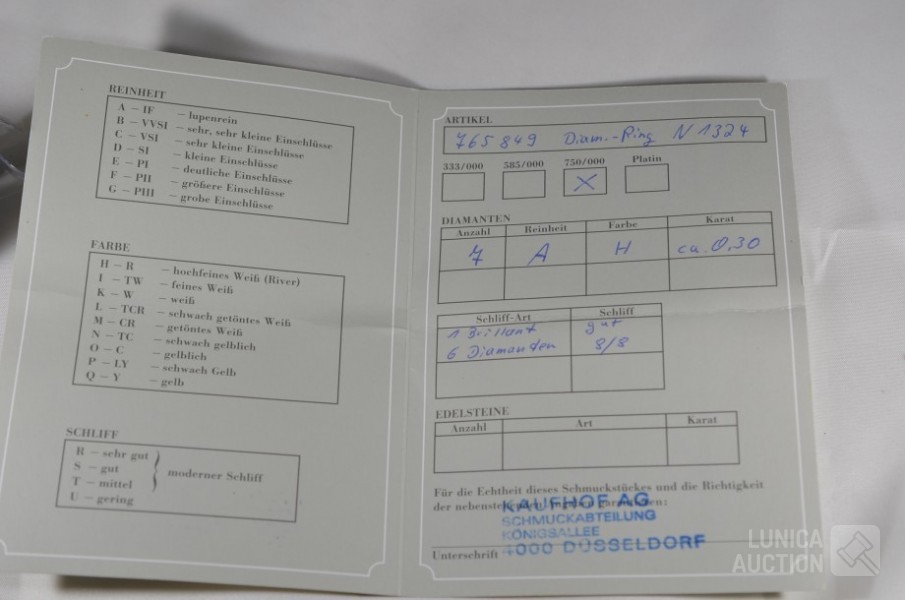 REINHEIT
A – IF – lupenrein
B – VVSI – sehr, sehr kleine Einschlüsse
C – VSI – sehr kleine Einschlüsse
D – SI – kleine Einschlüsse
E – PI – deutliche Einschlüsse
F – PII – größere Einschlüsse
G – PIII – grobe Einschlüsse
FARBE
H – R – hochfeines Weiß (River)
I – TW – feines Weiß
K – W – weiß
L – TCR – schwach getöntes Weiß
M – CR – getöntes Weiß
N – TC – schwach gelblich
O – C – gelblich
P – LY – schwach Gelb
Q – Y – gelb
SCHLIFF
R – sehr gut
S – gut
T – mittel
U – gering
moderner Schliff
ARTIKEL
765 849 Diam.-Ring N 1324
333/000 585/000 750/000 Platin
X
DIAMANTEN
Anzahl Reinheit Farbe Karat
7 A H ca. 0,30
Schliff-Art Schliff
1 Brillant gut
6 Diamanten 8/8
EDELSTEINE
Anzahl Art Karat
Für die Echtheit dieses Schmuckstückes und die Richtigkeit
der nebenstehenden Angaben garantieren:
KAUFHOF AG
SCHMUCKABTEILUNG
KÖNIGSALLEE
Unterschrift 4000 DÜSSELDORF
LUNICA
AUCTION